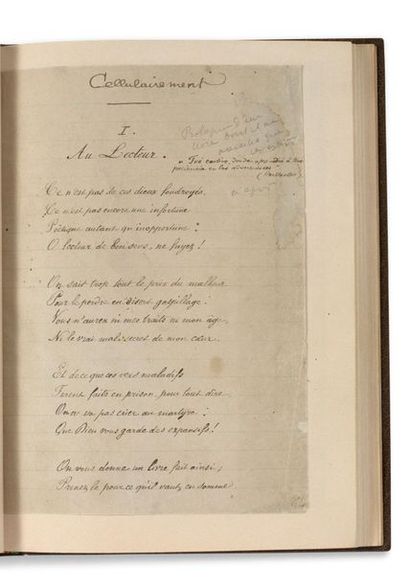 Cellulairement
I.
Au Lecteur.
Prologue d'un
livre dont il ne
paraîtra que
« Fué cautivo, donde aprendió à tener
paciencia en las adversidades »
(Cervantes)
Ce n'est pas de ces dieux foudroyés,
Ce n'est pas encore une infortune
Poëtique autant qu'inopportune :
O lecteur de bon sens, ne fuyez !
On sait trop tout le prix du malheur
Pour le perdre en disert gaspillage.
Vous n'aurez ni mes traits ni mon âge,
Ni le vrai mal secret de mon cœur.
Et de ce que ces vers maladifs
Furent faits en prison, pour tout dire,
On ne va pas crier au martyre :
Que Dieu vous garde des expansifs !
On vous donne un livre fait ainsi,
Prenez-le pour ce qu'il vaut, en somme.